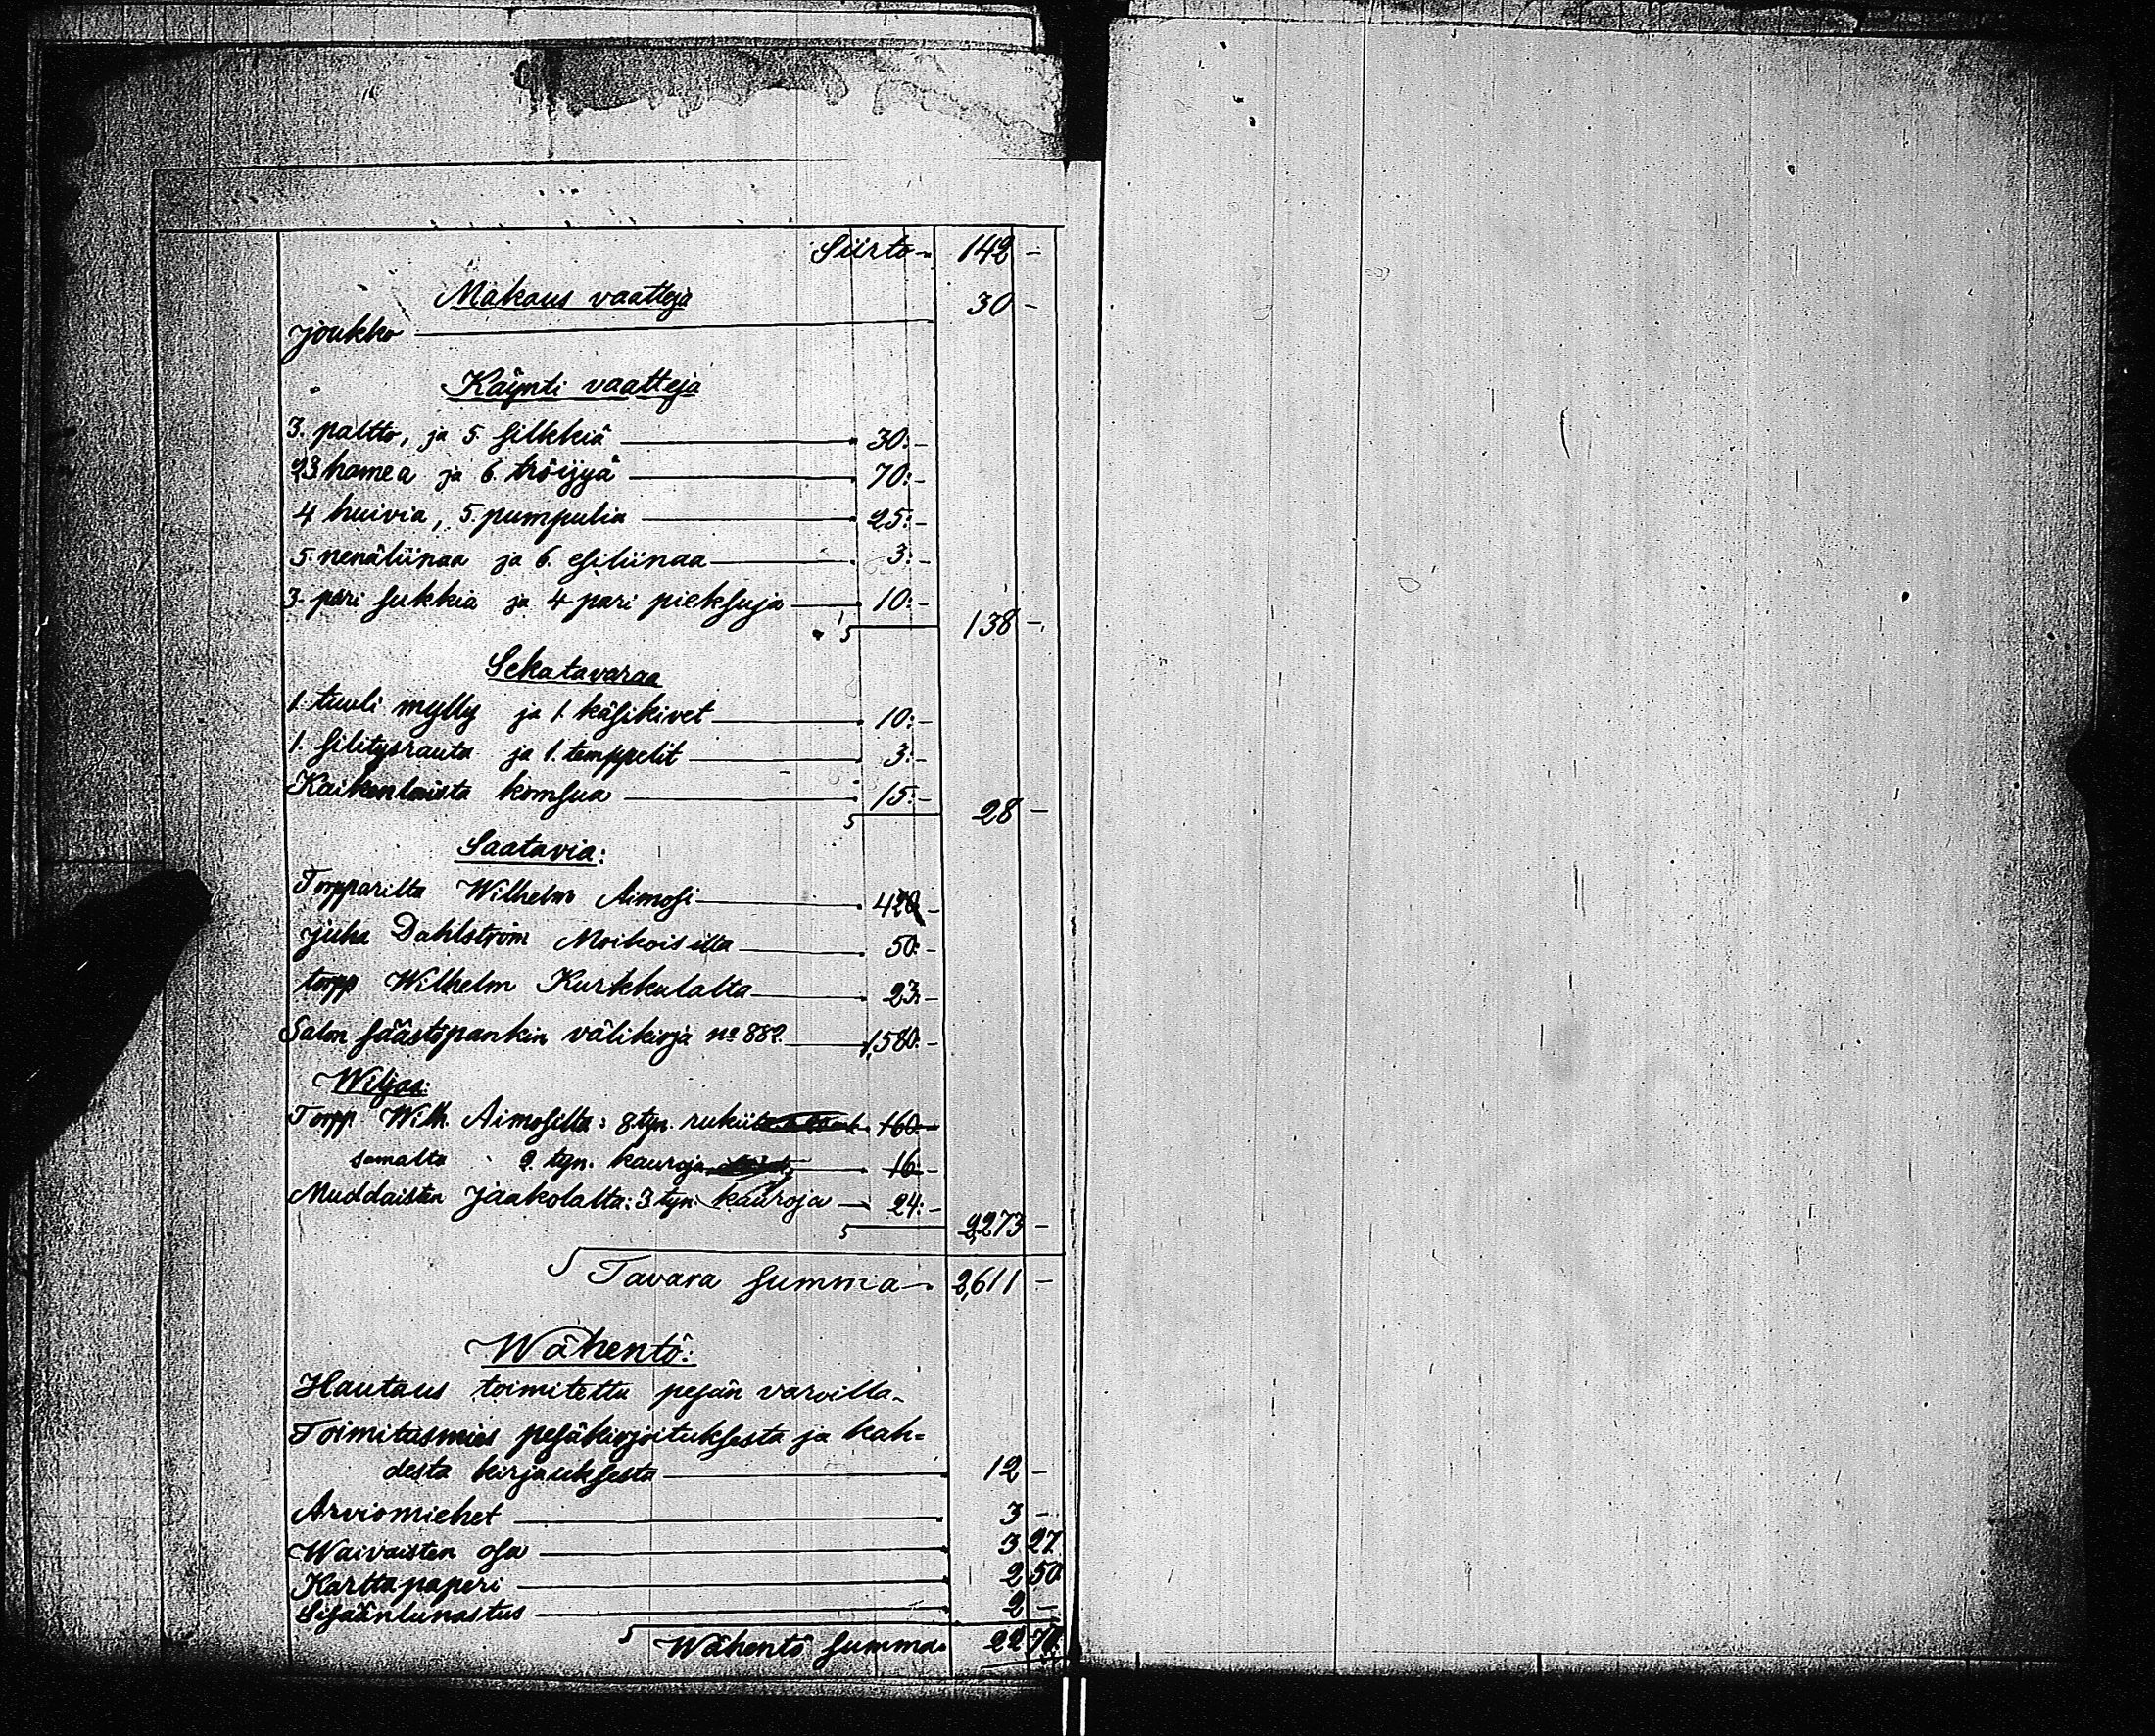 Siirto 142 -
Makaus vaatteja 30 -
joukko
Käynti vaatteja
3. paltto, ja 5. silkkiä 30:-
23 hamea ja 6. tröijyä 70:-
4 huivia, 5. pumpulia 25:-
5. nenäliinaa ja 6. esiliinaa 3:-
3. pari sukkia ja 4 pari pieksuja 10:-
138 -
Sekatavaraa
1. tuuli mylly ja 1. käsikivet 10:-
1. silitysrauta ja 1. temppelit 3:-
Kaikenlaista komsua 15:-
28 -
Saatavia:
Torpparilta Wilhelm Aimosi 420 -
Juha Dahlström Moikoisilta 50:-
torpp Wilhelm Kurkkulalta 23:-
Salon säästöpankin välikirja No 882. 1,580:-
Wiljaa:
Torpp Wilh. Aimosilta: 8 tyn. rukiita 160:-
samalta 2. tyn. kauroja 16:-
Muddaisten Jaakolalta: 3 tyn: kauroja 24:-
2,273 -
Tavara summa 2,611 -
Wähentö:
Hautaus toimitettu pesän varoilla.
Toimitusmies pesäkirjoituksesta ja kah=
desta kirjauksesta 12 -
Arviomiehet 3 -
Waivaisten osa 3 27
Karttapaperi 2 50
Sisäänlunastus 2 -
Wähentö summa 22 77